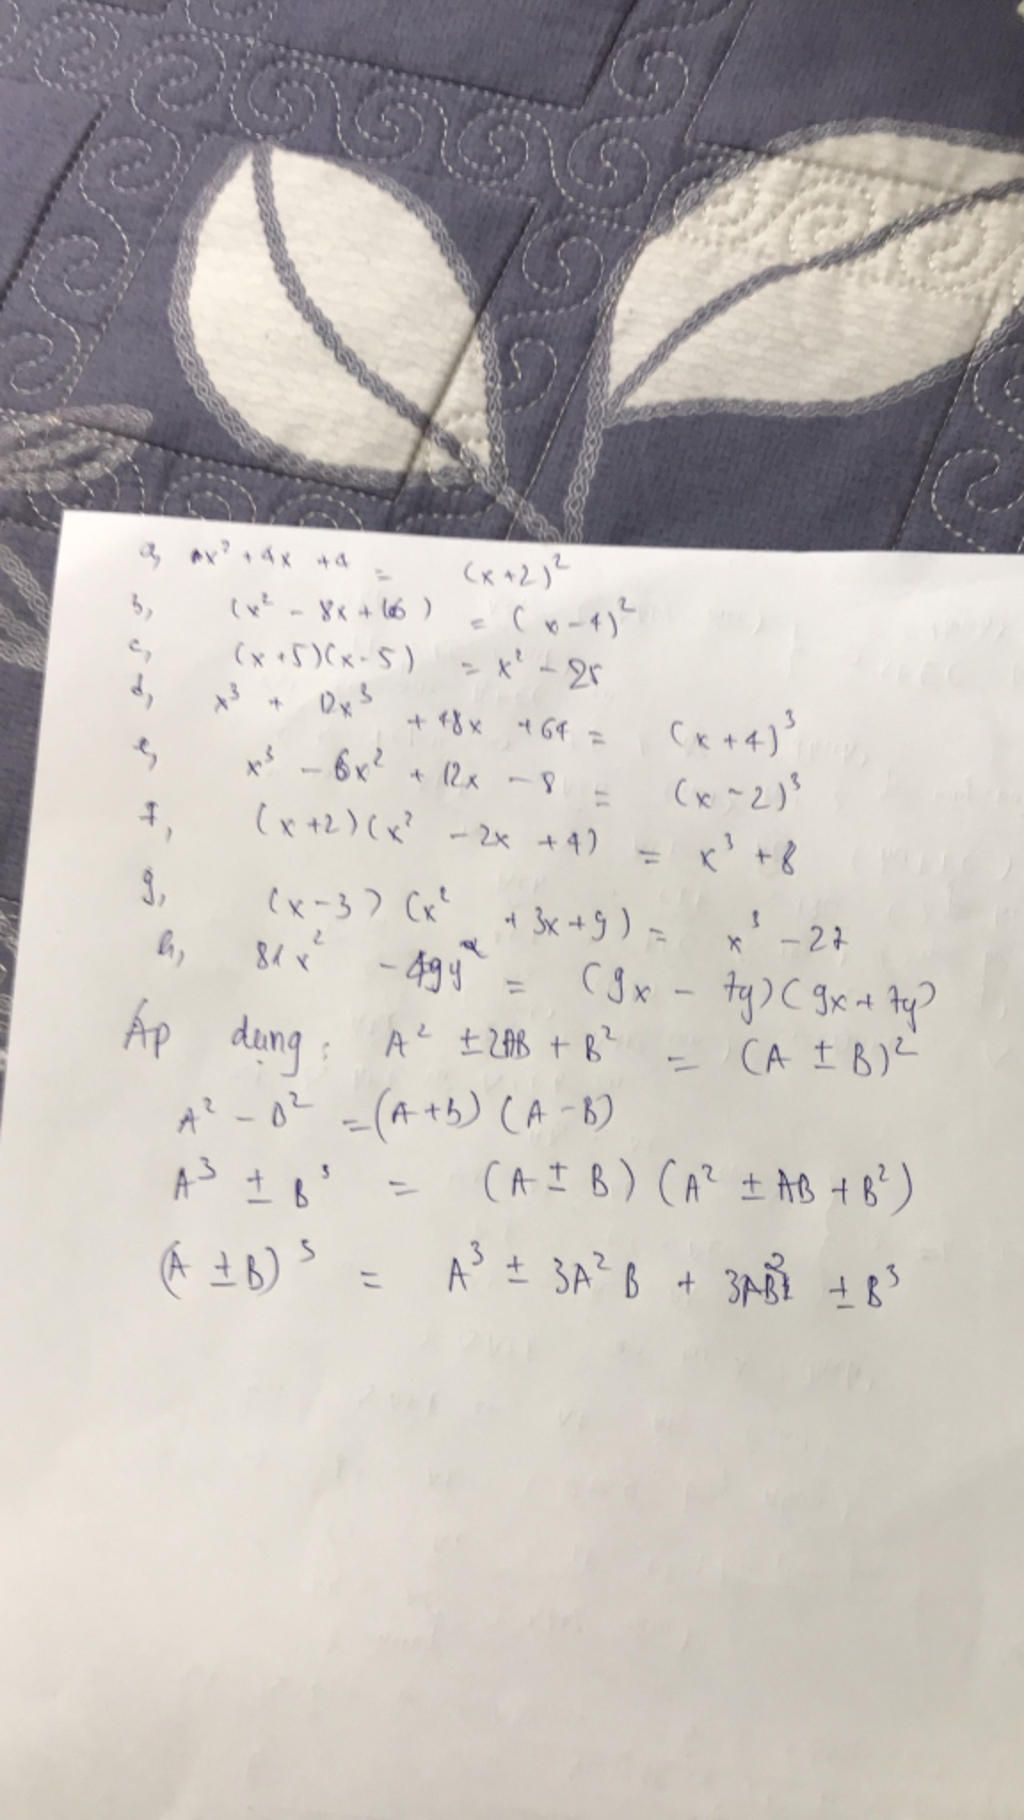 a, x² + 4x + 4 = (x+2)²
b, (x² - 8x + 16) = (x-4)²
c, (x+5)(x-5) = x² - 25
d, x³ + 12x³ + 48x + 64 = (x+4)³
e, x³ - 6x² + 12x - 8 = (x-2)³
f, (x+2)(x² - 2x + 4) = x³ + 8
g, (x-3)(x² + 3x + 9) = x³ - 27
h, 81x² - 49y² = (9x - 7y)(9x + 7y)
Áp dụng: A² ± 2AB + B² = (A ± B)²
A² - B² = (A+B)(A-B)
A³ ± B³ = (A ± B)(A² ± AB + B²)
(A ± B)³ = A³ ± 3A²B + 3AB² ± B³